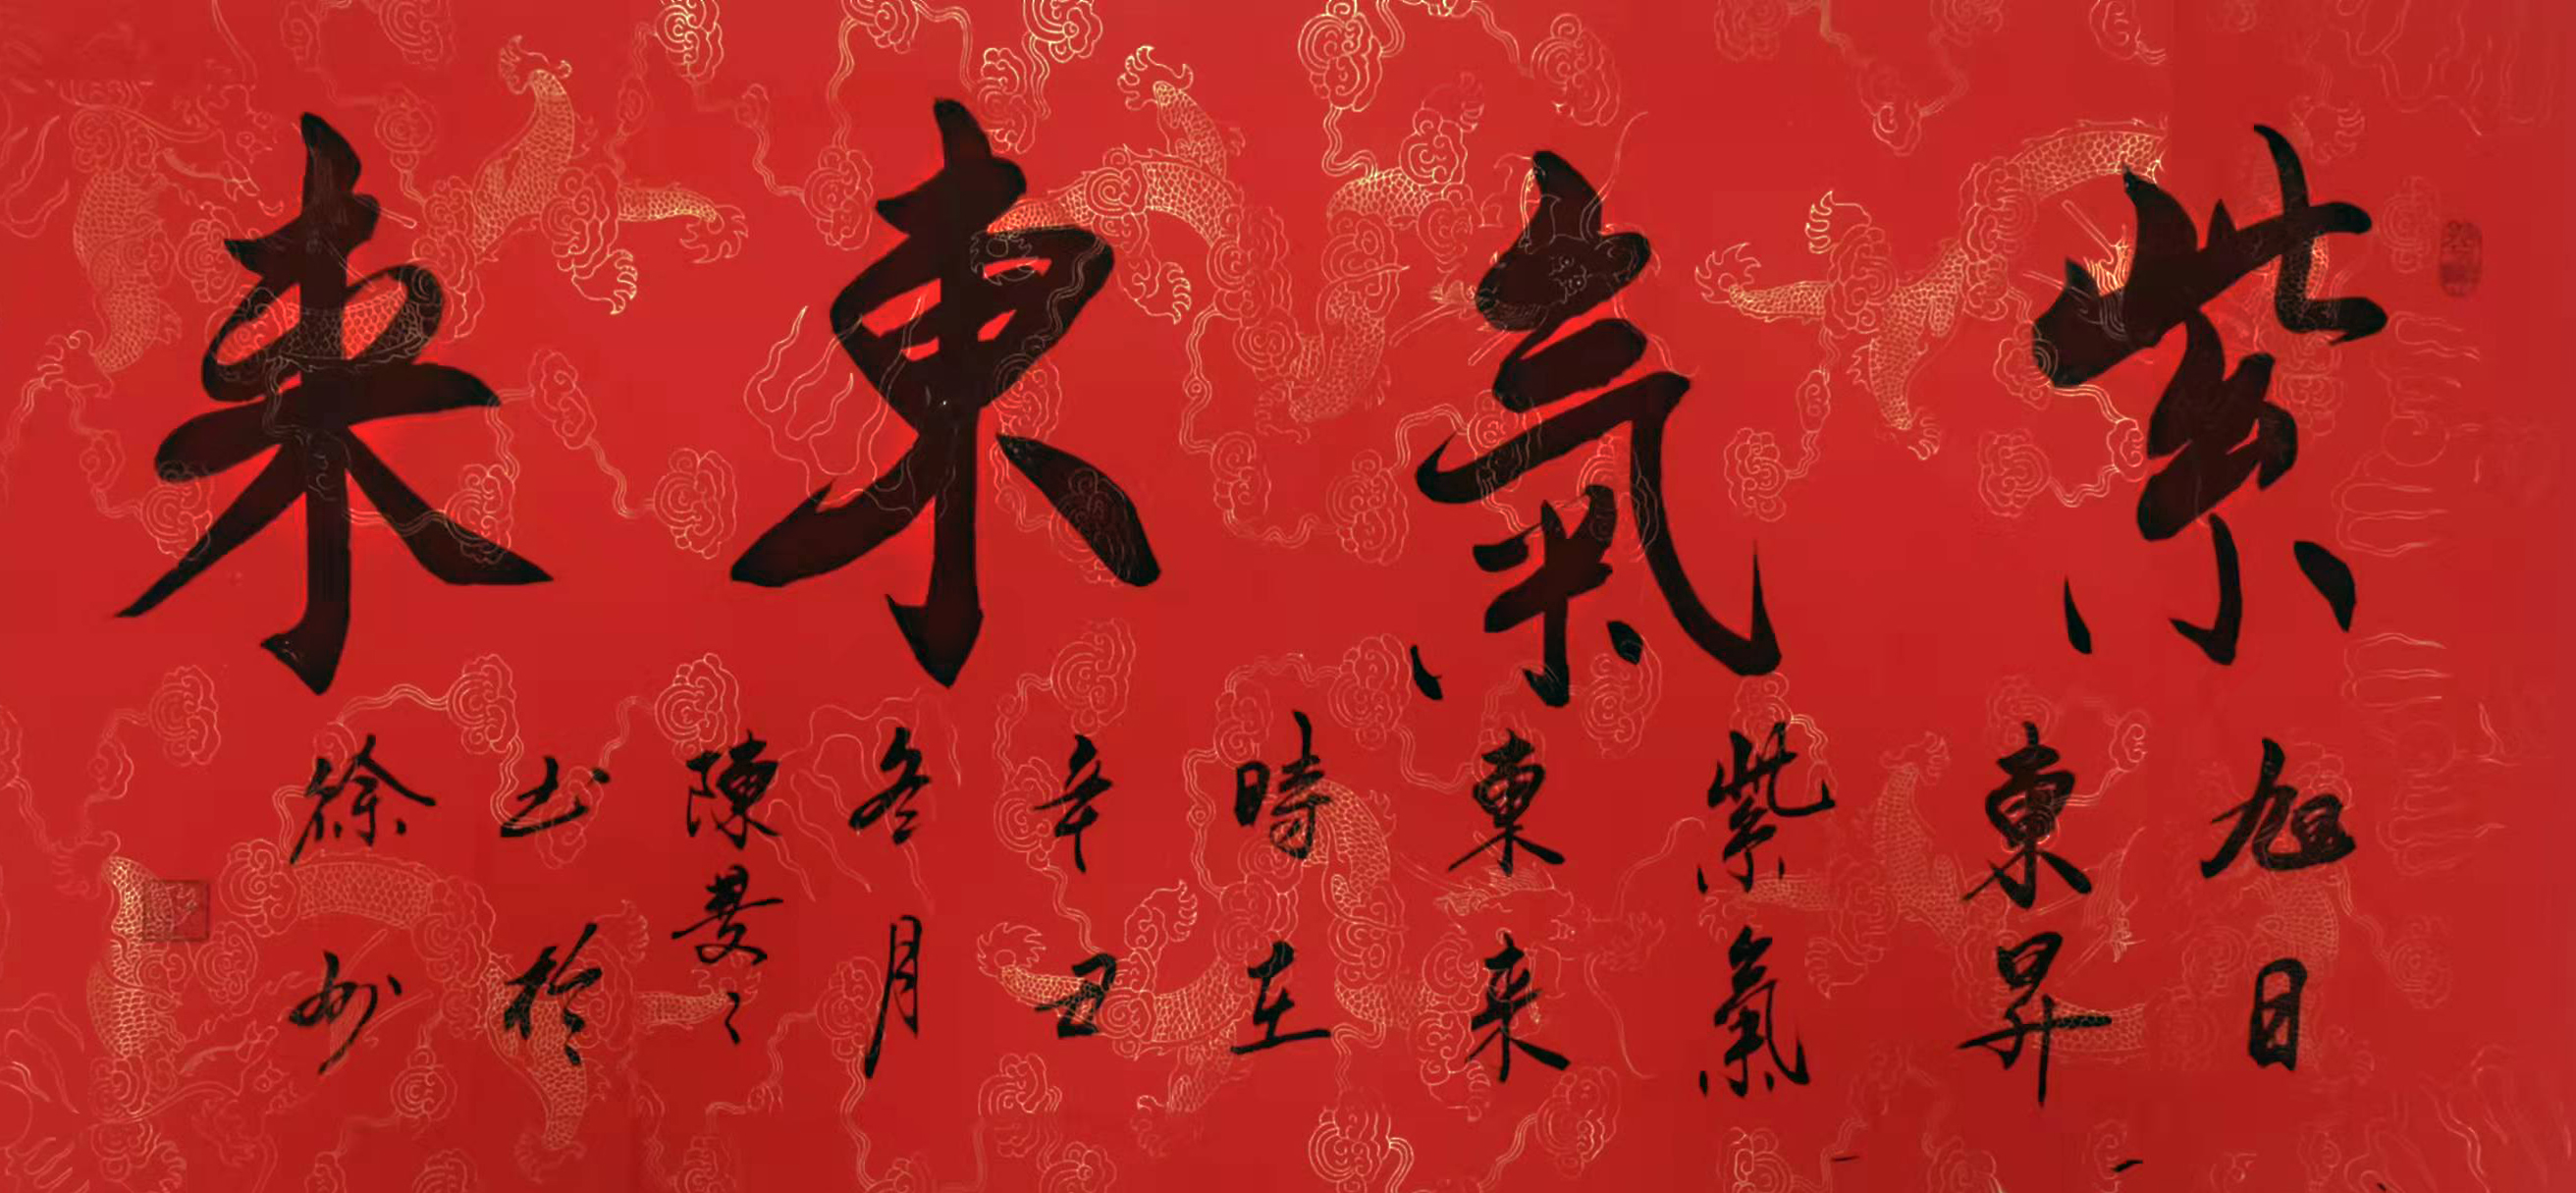 紫氣東来
旭日
東昇
紫氣
東来
時在
辛丑
冬月
陳旻〻
书於
徐州